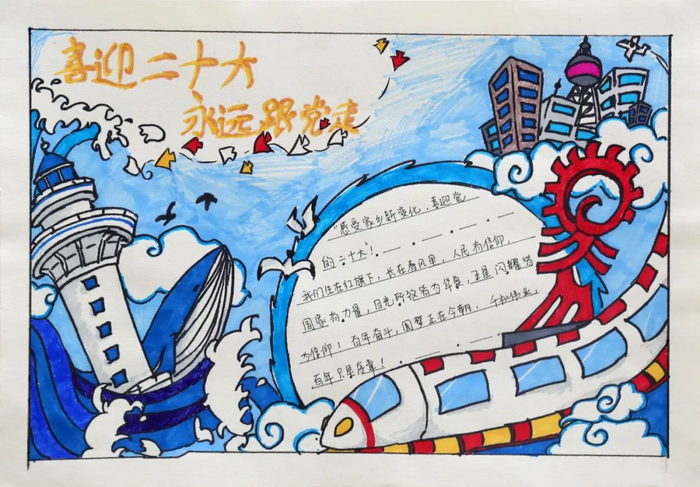 喜迎二十大
永远跟党走
“感受家乡新变化，喜迎党
的二十大”！
我们生在红旗下，长在春风里，人民有信仰，
国家有力量，目光所致皆为华夏，五星闪耀皆
为信仰！百年奋斗，圆梦正在今朝；千秋伟业，
百年只是序章！